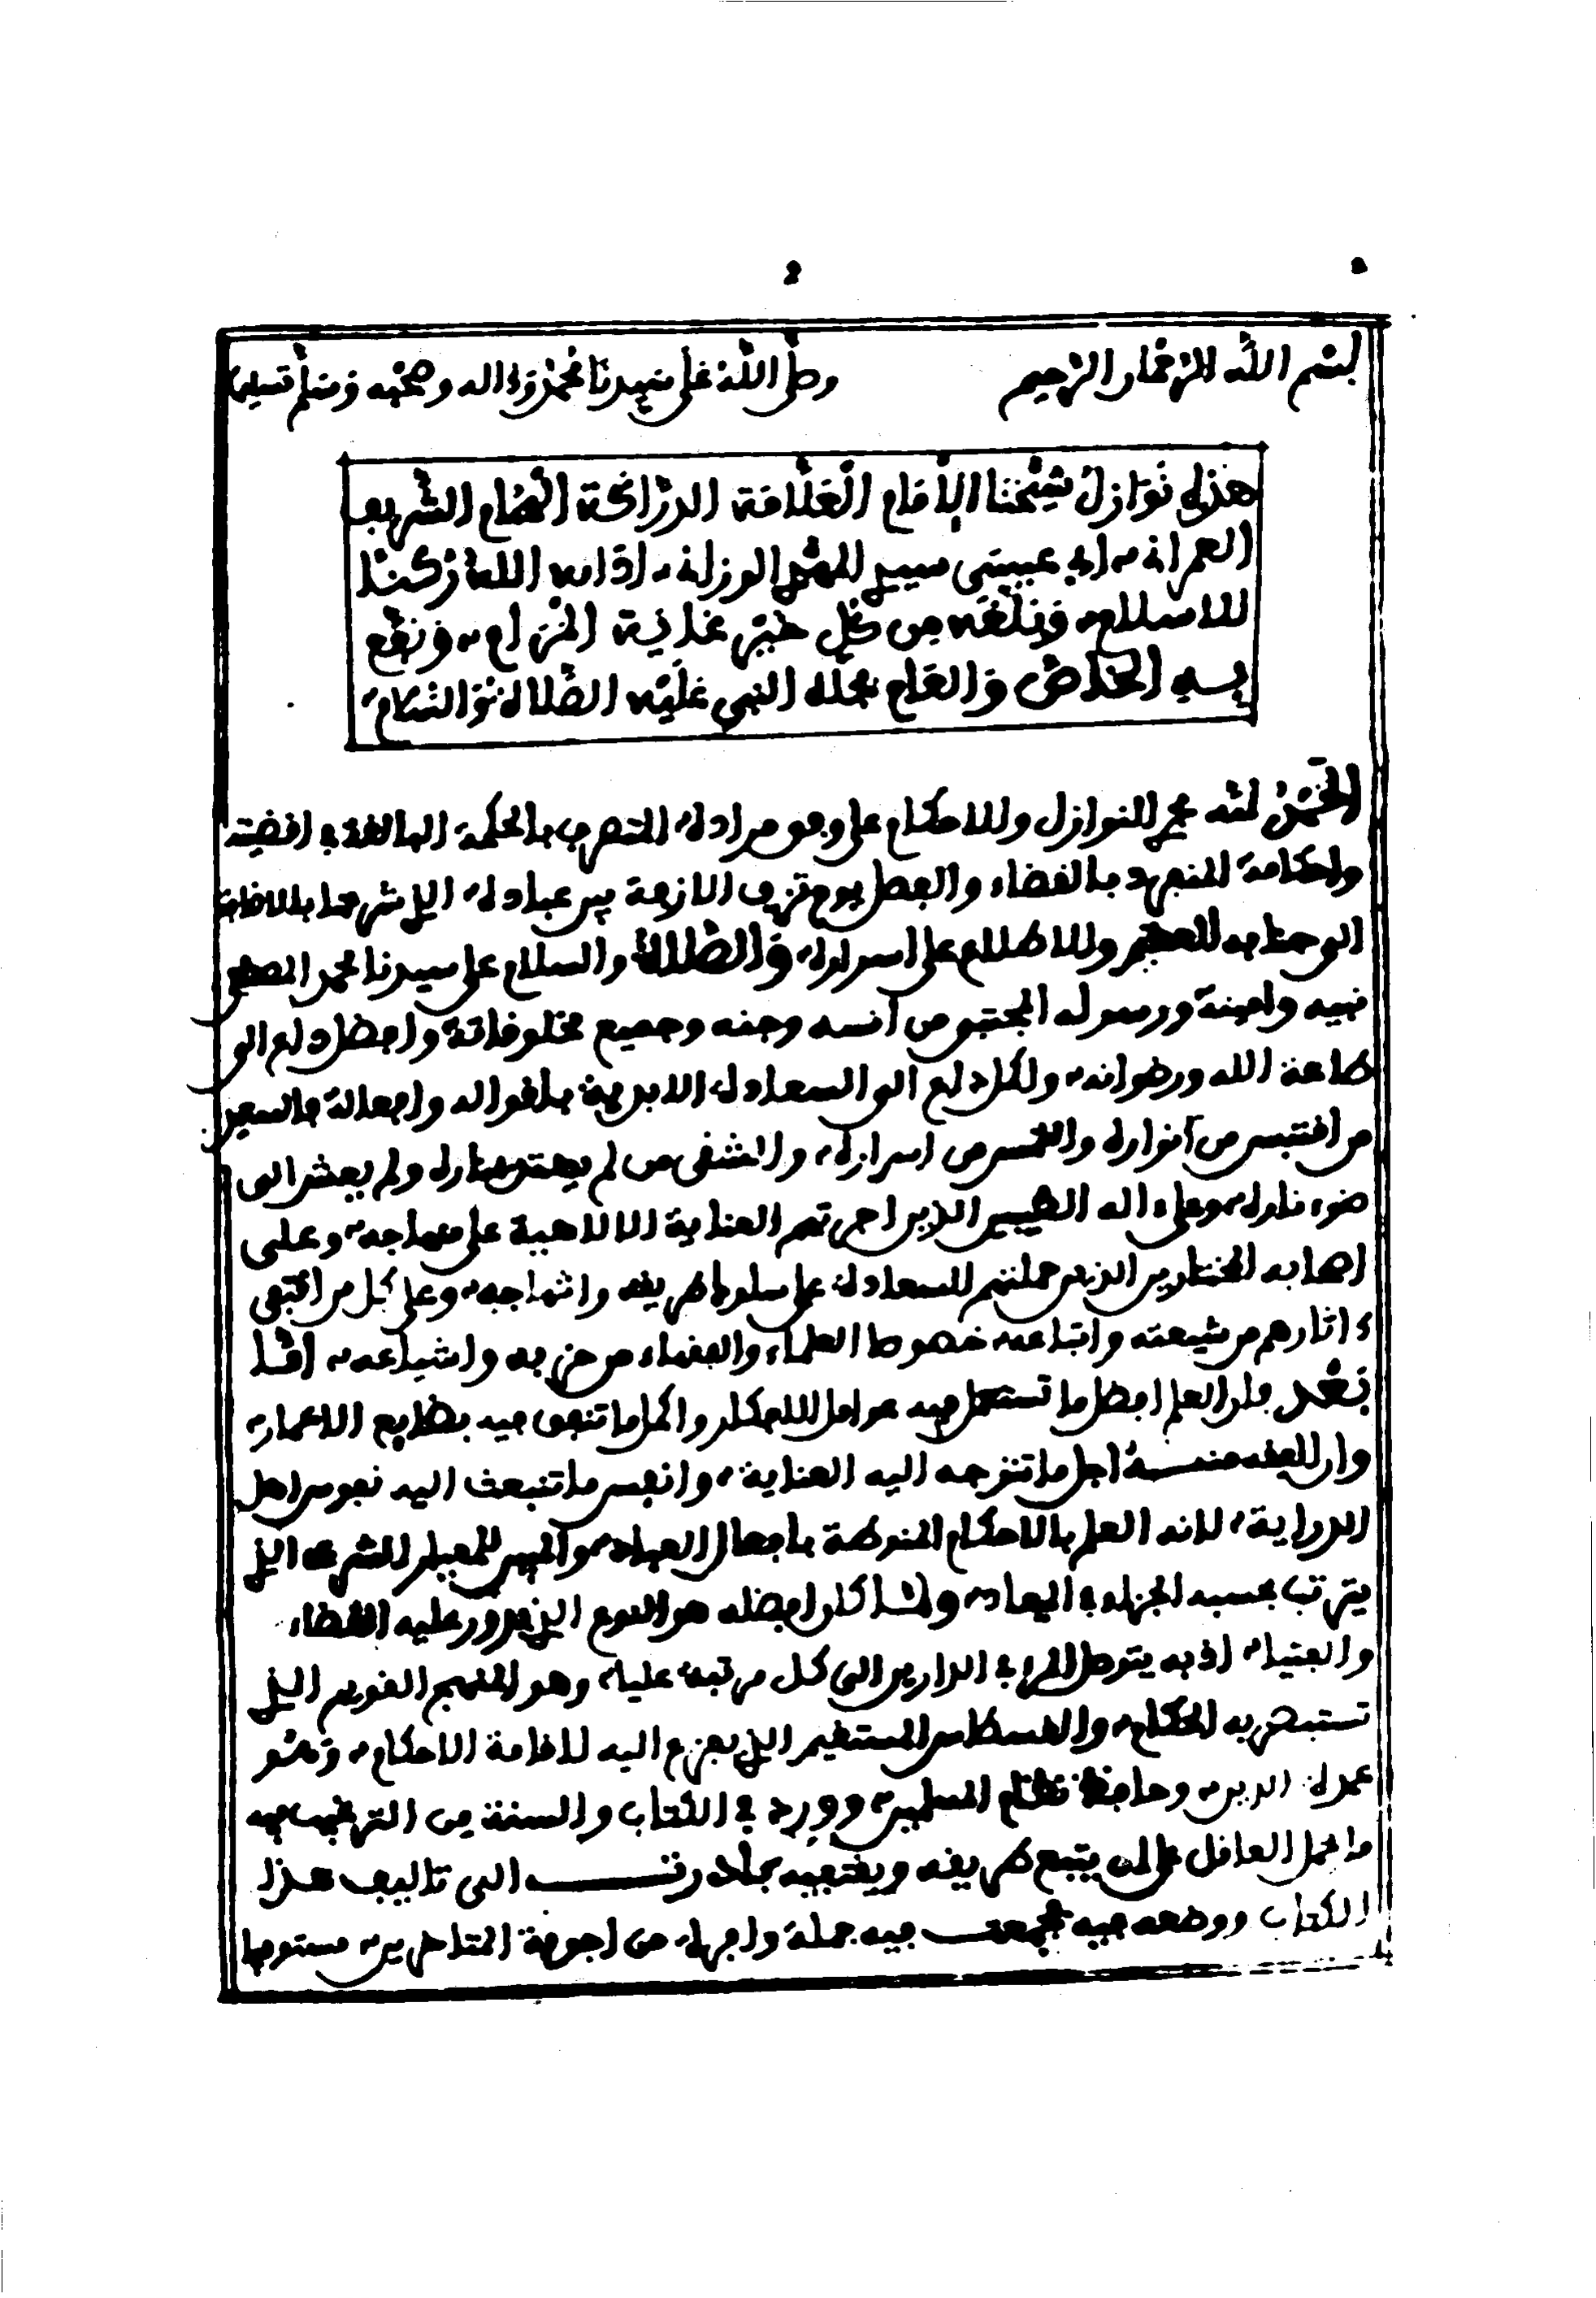 ٢
بسم الله الرحمان الرحيم وصلى الله على سيدنا محمد وءاله وصحبه وسلم تسليما
هذه نوازل شيخنا الإمام العلامة الدراكة الهمام الشريف
العمراني ابي عيسى سيدي المهدي الوزاني ادامه الله ركنا
للاسلام وبلغه من كل خير غاية المرام ونفع
به الخاص والعام بجاه النبي عليه الصلاة والسلام
الحمد لله مجري النوازل والاحكام على وفق مراده المتصرف بالحكمة البالغة في اقضيته
واحكامه المنفرد بالقضاء والفصل يوم ترد الازمة بين عباده الذي شرحنا بالافاق
الوجدانية والاطلاع على اسراره والصلاة والسلام على سيدنا محمد المصطفى
نبيه وامينه ورسوله المجتبى من انسه وجنه وجميع مخلوقاته وافضل داع الى
طاعة الله ورضوانه واكمل داع الى السعادة الابدية باقواله وافعاله فالسعيد
من اقتبس من انواره والتمس من اسراره والشقي من لم يهتد بمناره ولم يعش الى
ضوء ناره وعلى ءاله الطيبين الذين اجرتهم العناية الالاهية على منهاجه وعلى
اصحابه المختارين الذين حملتهم السعادة على سلوك طريقه وانتهاجه وعلى كل من اقتفى
ءاثارهم من شيعته واتباعه خصوصا العلماء والفقهاء من حزبه واشياعه اما
بعد فان العلم افضل ما تستعمل فيه عوامل الافكار واكمل ما تنفق فيه بضايع الاعمار
وان الفقه منه اجل ما تتوجه اليه العناية وانفس ما تنبعث اليه نفوس اهل
الدراية لانه العلم بالاحكام المنوطة بافعال العباد والمبين للمعيار الشرعي الذي
يترتب بحسبه الجزاء في المعاد ولما كان افضله هو النوع الذي يدور عليه القضاء
والفتيا اذ به يتوصل المرء في الدارين الى كل مرتبة عليا وهو المنهج القويم الذي
تستبصر به الحكام والقسطاس المستقيم الذي يفزع اليه لاقامة الاحكام وهو
عمدة الدين وحافظ نظام المسلمين وورد في الكتاب والسنة من الترغيب فيه
ما حمل العاقل على ان يتبع طريقه ويقتفيه بادرت الى تاليف هذا
الكتاب ووضعه فيه فجمعت فيه جملة وافرة من اجوبة المتاخرين مستوفيا